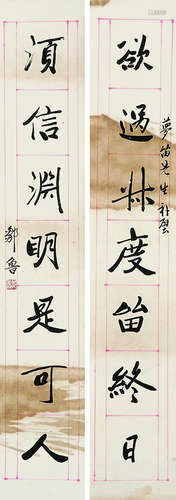 欲過叔度留終日
夢笛先生
須信淵明是可人
鄒魯